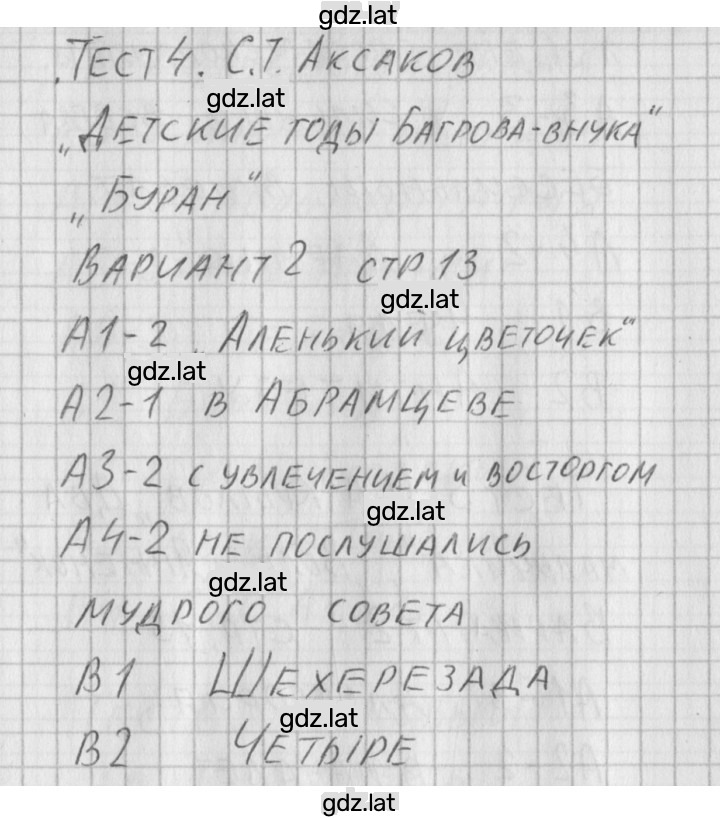 gdz.lat
Тест 4. С.Т. Аксаков
gdz.lat
„Детские годы Багрова-внука“
„Буран“
Вариант 2 стр 13
gdz.lat
А1-2 „Аленький цветочек“
gdz.lat
А2-1 в Абрамцеве
А3-2 с увлечением и восторгом
gdz.lat
А4-2 не послушались
gdz.lat
мудрого совета
В1 Шехерезада
gdz.lat
В2 Четыре
gdz.lat